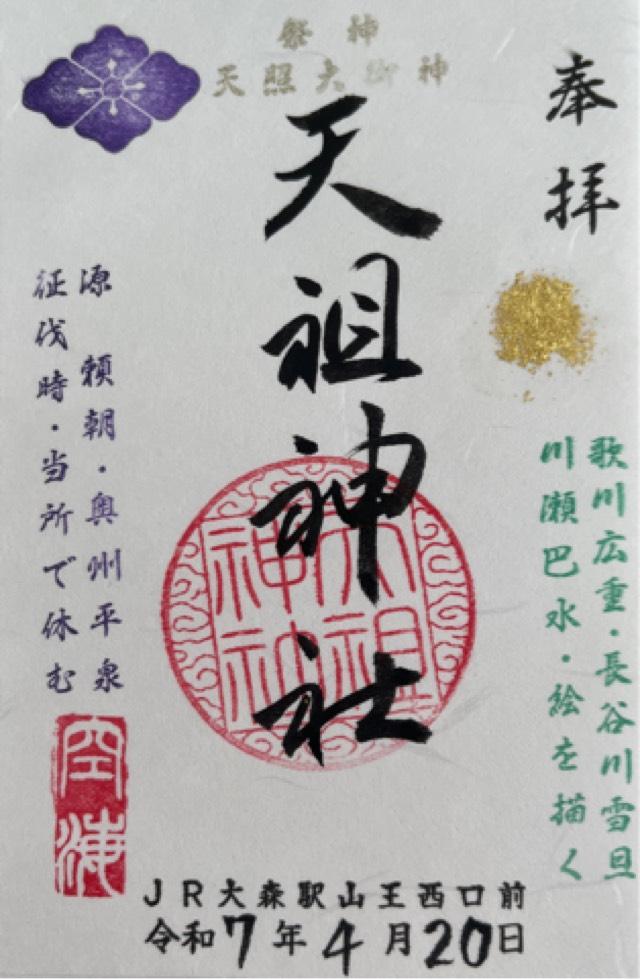 奉拝
歌川広重・長谷川雪旦
川瀬巴水・絵を描く
祭神
天照大御神
天祖神社
天祖
神社
源頼朝・奥州平泉
征伐時・当所で休む
空海
JR大森駅山王西口前
令和7年4月20日